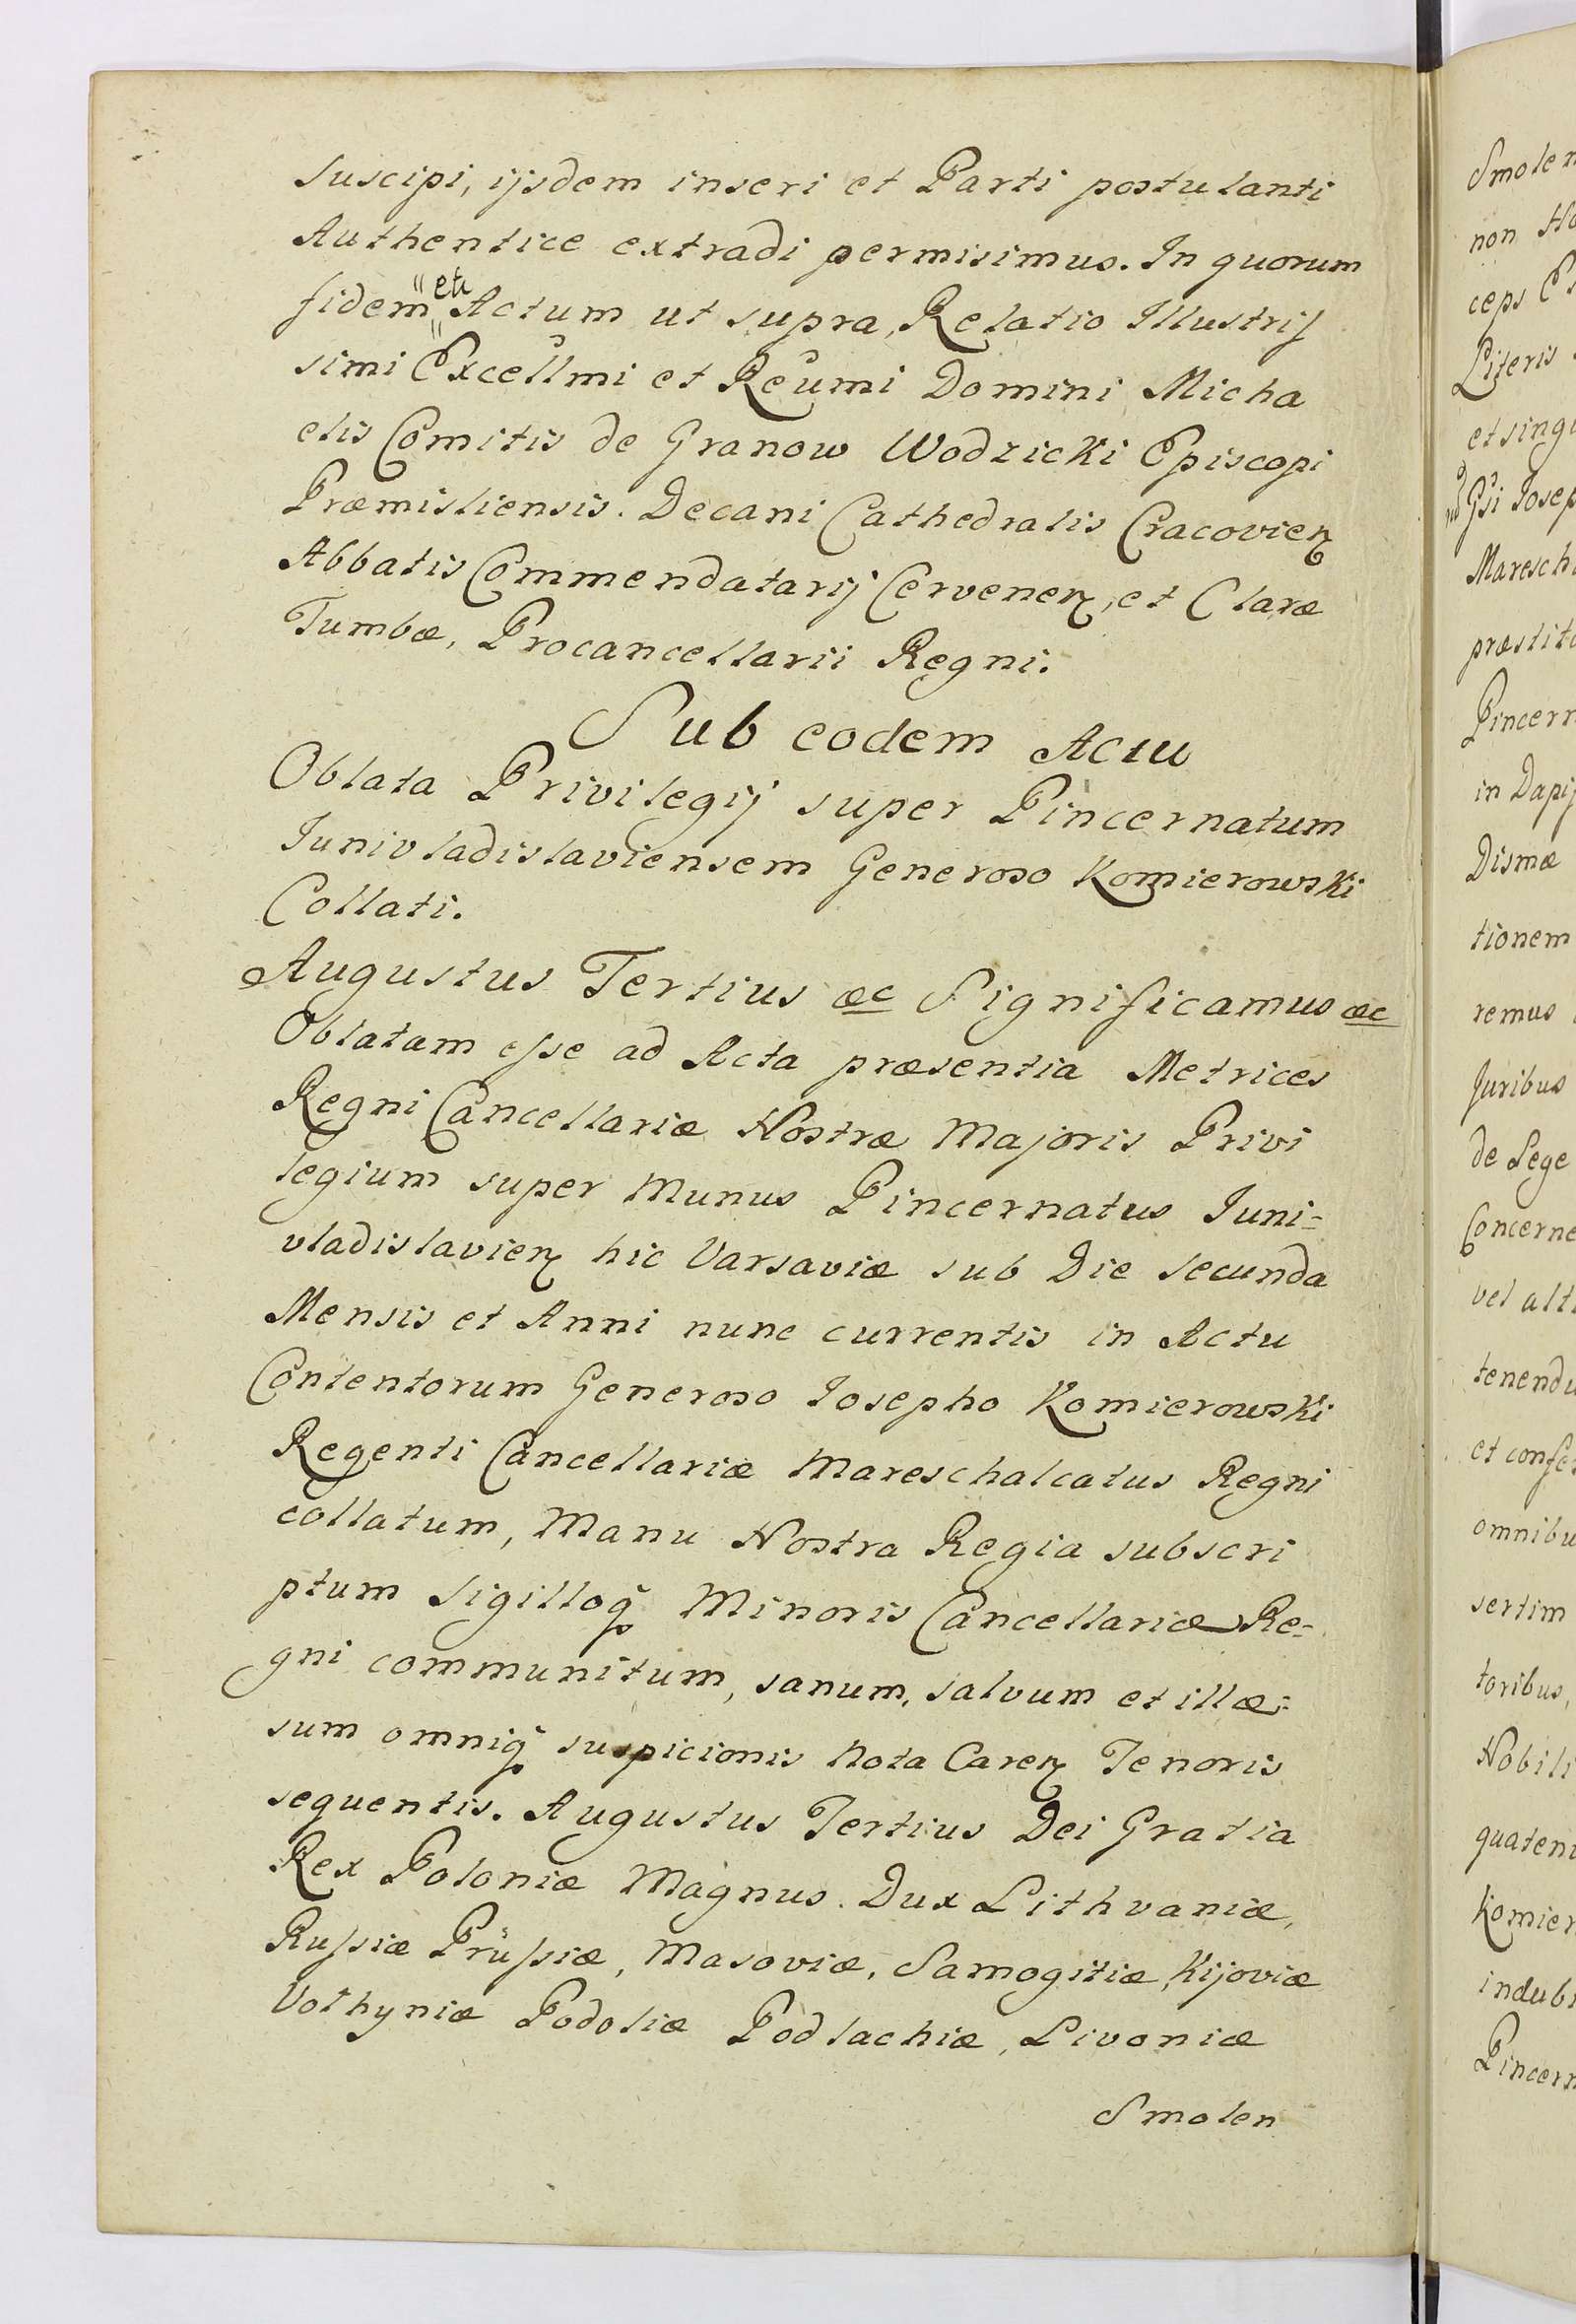 suscipi, ijsdem inseri et Parti postulanti
Authentice extradi permisimus. In quorum
fidem etc Actum ut supra, Relatio Illustris
simi Excellmi et Reumi Domini Micha
elis Comitis de Granow Wodzicki Episcopi
Præmisliensis. Decani Cathedralis Cracovien
Abbatis Commendatarij Cervenen, et Claræ
Tumbæ, Procancellarii Regni.
Sub eodem Actu
Oblata Privilegij super Pincernatum
Junivladislaviensem Generoso Komierowski
Collati.
Augustus Tertius &c Significamus &c
Oblatam esse ad Acta præsentia Metrices
Regni Cancellariæ Nostræ Majoris Privi
legium super Munus Pincernatus Juni=
vladislavien hic Varsaviæ sub Die secunda
Mensis et Anni nunc currentis in Actu
Contentorum Generoso Josepho Komierowski
Regenti Cancellariæ Mareschalcatus Regni
collatum, Manu Nostra Regia subscri
ptum Sigilloq Minoris Cancellariæ Re=
gni communitum, sanum, salvum et illæ=
sum omniq suspicionis Nota Caren Tenoris
sequentis. Augustus Tertius Dei Gratia
Rex Poloniæ Magnus. Dux Lithvaniæ,
Russiæ Prussiæ, Masoviæ, Samogitiæ, Kijoviæ
Volhyniæ Podoliæ Podlachiæ, Livoniæ
Smolen
Smolen
non
ceps
Literis
et singu
Josep
Maresch
præstit
Pincern
in Dapif
Dismæ
tionem
remus
Juribus
de Lege
Concerne
vel alt
tenendu
et confe
omnibu
sertim
toribus,
Nobili
quaten
Komier
indubi
Pincern